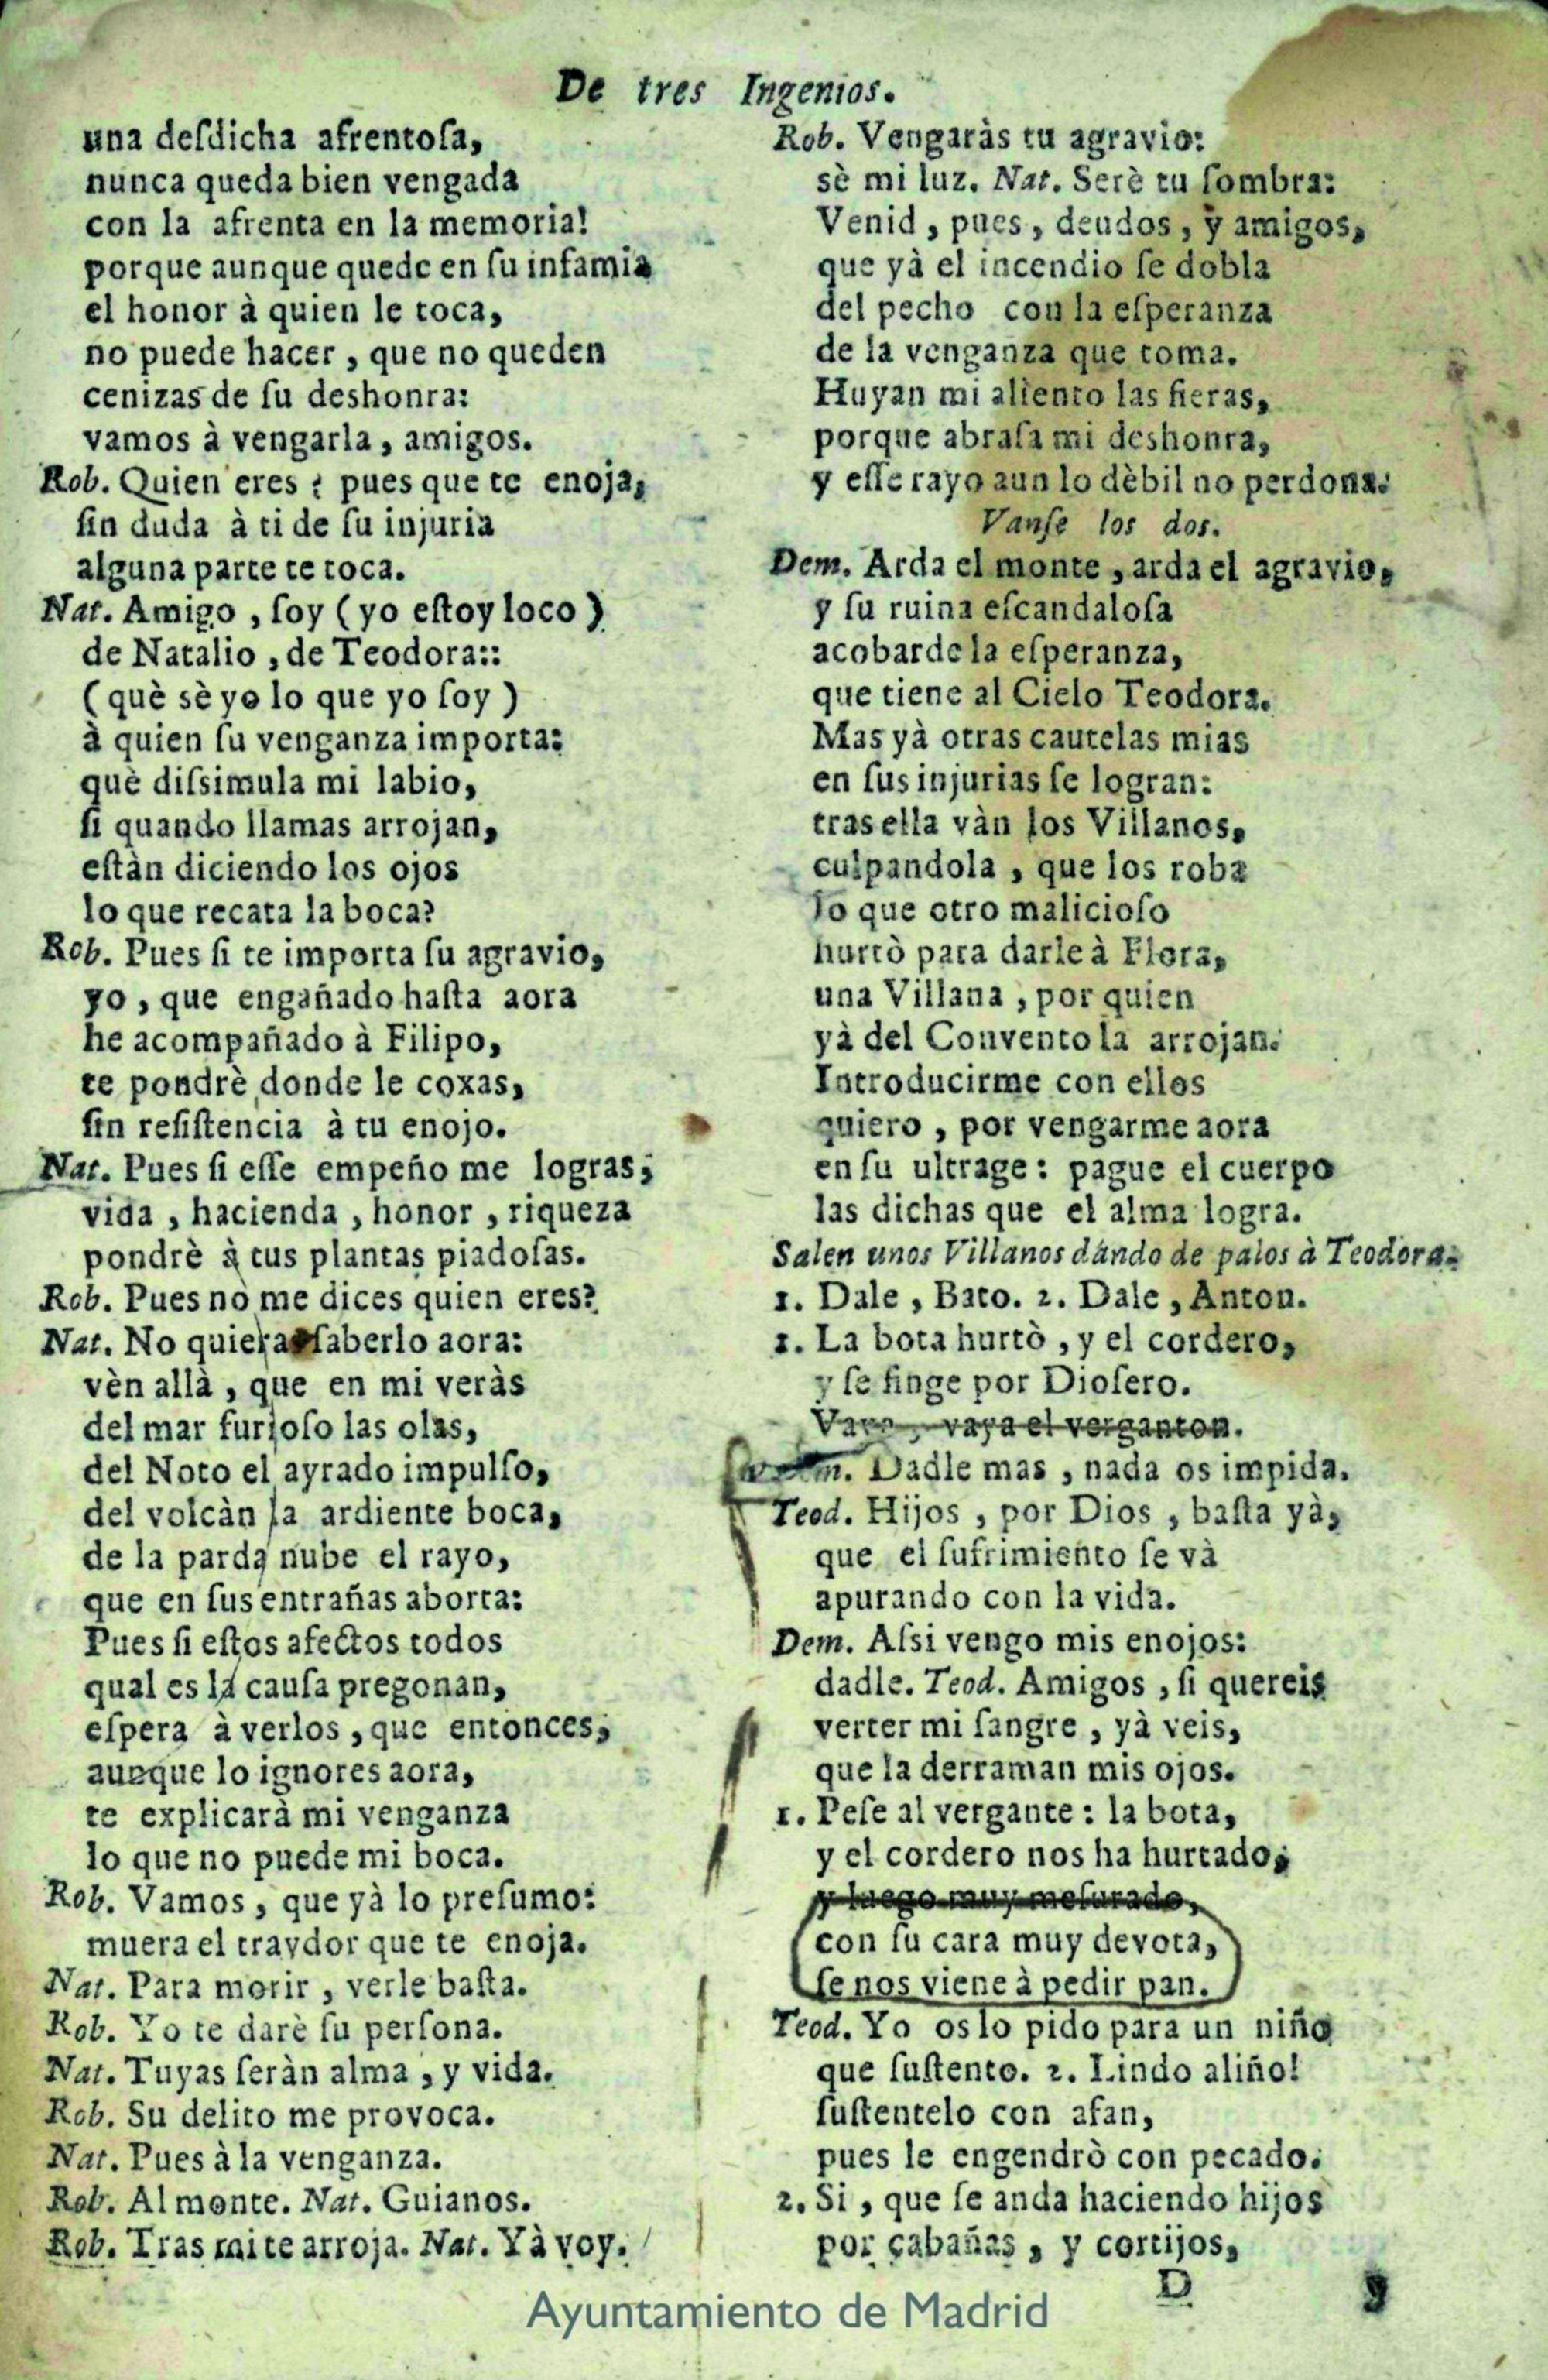 De tres Ingenios.
una deſdicha afrentoſa,
nunca queda bien vengada
con la afrenta en la memoria!
porque aunque quede en ſu infamia
el honor à quien le toca,
no puede hacer, que no queden
cenizas de ſu deshonra:
vamos à vengarla, amigos.
Rob. Quien eres? pues que te enoja,
ſin duda à ti de ſu injuria
alguna parte te toca.
Nat. Amigo, ſoy (yo eſtoy loco)
de Natalio, de Teodora::
(què sè yo lo que yo ſoy)
à quien ſu venganza importa:
què diſsimula mi labio,
ſi quando llamas arrojan,
eſtàn diciendo los ojos
lo que recata la boca?
Rob. Pues ſi te importa ſu agravio,
yo, que engañado haſta aora
he acompañado à Filipo,
te pondrè donde le coxas,
ſin reſiſtencia à tu enojo.
Nat. Pues ſi eſſe empeño me logras,
vida, hacienda, honor, riqueza
pondrè à tus plantas piadoſas.
Rob. Pues no me dices quien eres?
Nat. No quieras ſaberlo aora:
vèn allà, que en mi veràs
del mar furioſo las olas,
del Noto el ayrado impulſo,
del volcàn la ardiente boca,
de la parda nube el rayo,
que en ſus entrañas aborta:
Pues ſi eſtos afectos todos
qual es la cauſa pregonan,
eſpera à verlos, que entonces,
aunque lo ignores aora,
te explicarà mi venganza
lo que no puede mi boca.
Rob. Vamos, que yà lo preſumo:
muera el traydor que te enoja.
Nat. Para morir, verle baſta.
Rob. Yo te darè ſu perſona.
Nat. Tuyas ſeràn alma, y vida.
Rob. Su delito me provoca.
Nat. Pues à la venganza.
Rob. Al monte. Nat. Guianos.
Rob. Tras mi te arroja. Nat. Yà voy.
Rob. Vengaràs tu agravio:
sè mi luz. Nat. Serè tu ſombra:
Venid, pues, deudos, y amigos,
que yà el incendio ſe dobla
del pecho con la eſperanza
de la venganza que toma.
Huyan mi aliento las fieras,
porque abraſa mi deshonra,
y eſſe rayo aun lo dèbil no perdona.
Vanſe los dos.
Dem. Arda el monte, arda el agravio,
y ſu ruina eſcandaloſa
acobarde la eſperanza,
que tiene al Cielo Teodora.
Mas yà otras cautelas mias
en ſus injurias ſe logran:
tras ella vàn los Villanos,
culpandola, que los roba
lo que otro malicioſo
hurtò para darle à Flora,
una Villana, por quien
yà del Convento la arrojan.
Introducirme con ellos
quiero, por vengarme aora
en ſu ultrage: pague el cuerpo
las dichas que el alma logra.
Salen unos Villanos dando de palos à Teodora.
1. Dale, Bato. 2. Dale, Anton.
1. La bota hurtò, y el cordero,
y ſe finge por Dioſero.
Vaya, vaya el verganton.
Dem. Dadle mas, nada os impida.
Teod. Hijos, por Dios, baſta yà,
que el ſufrimiento ſe và
apurando con la vida.
Dem. Aſsi vengo mis enojos:
dadle. Teod. Amigos, ſi quereis
verter mi ſangre, yà veis,
que la derraman mis ojos.
1. Peſe al vergante: la bota,
y el cordero nos ha hurtado,
y luego muy meſurado,
con ſu cara muy devota,
ſe nos viene à pedir pan.
Teod. Yo os lo pido para un niño
que ſuſtento. 2. Lindo aliño!
ſuſtentelo con afan,
pues le engendrò con pecado.
2. Si, que ſe anda haciendo hijos
por cabañas, y cortijos,
D
Ayuntamiento de Madrid